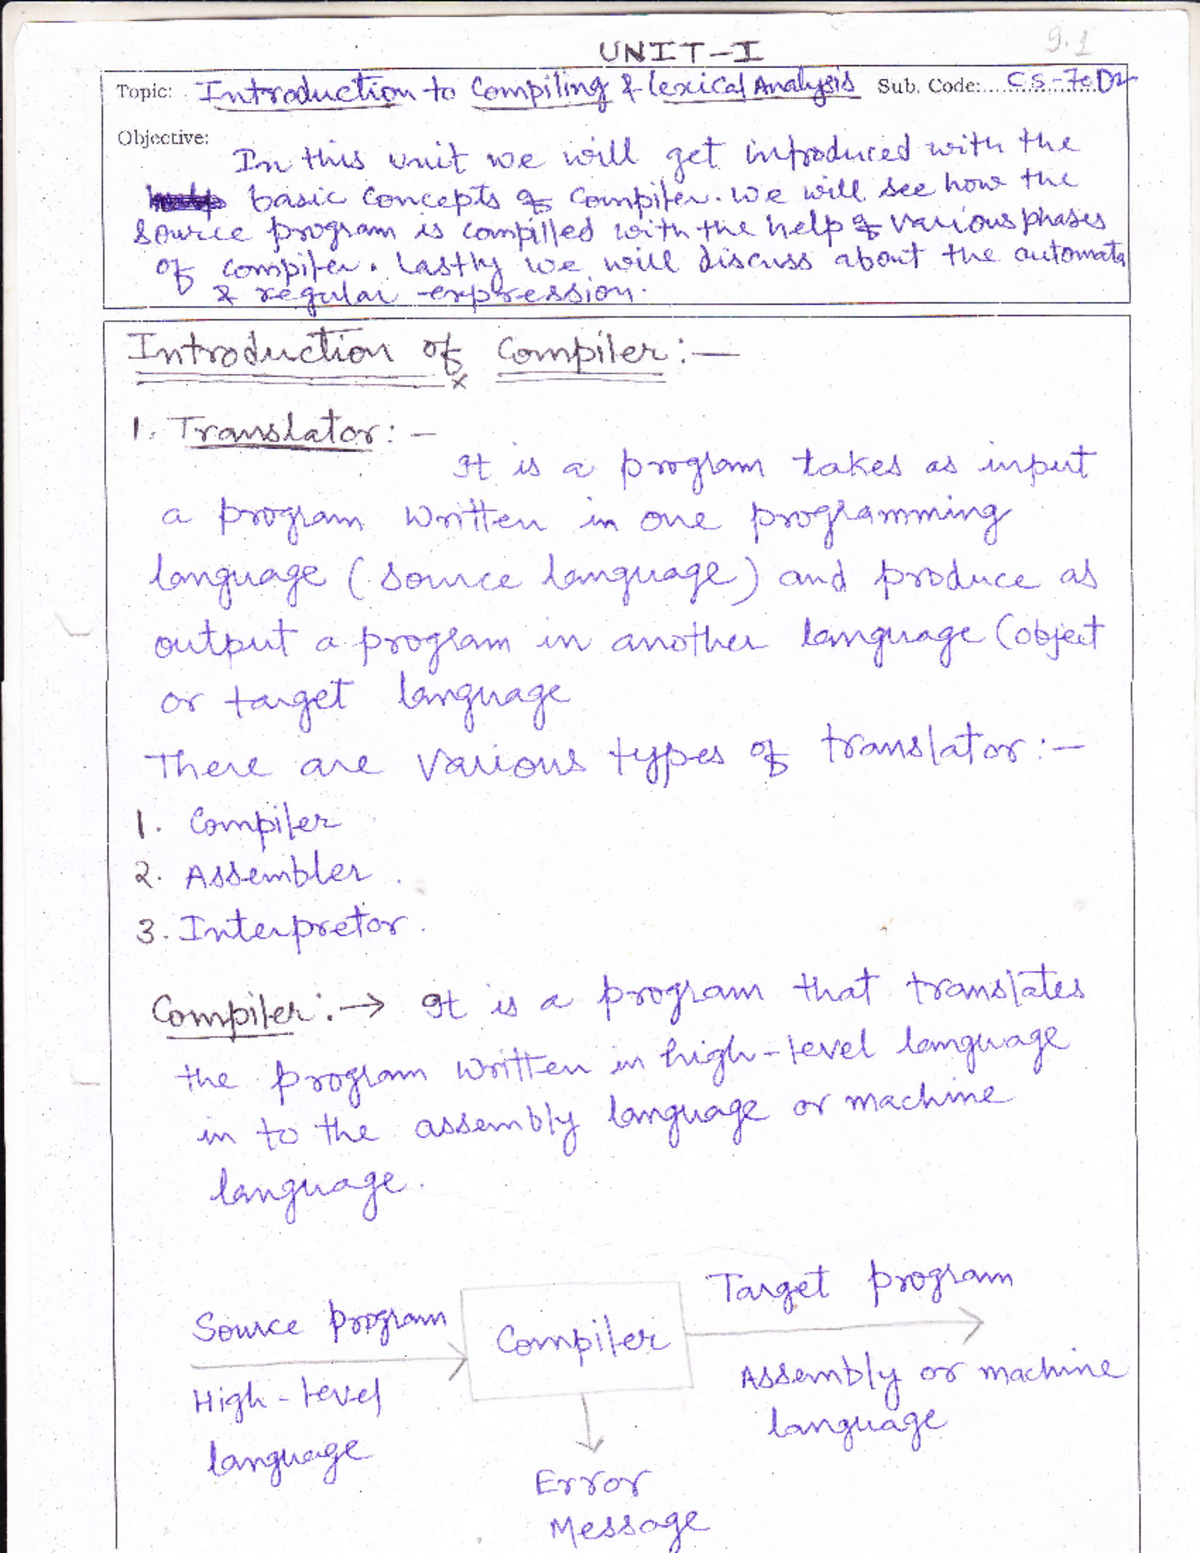 UNIT-I
9.1
Topic: Introduction to Compiling & lexical Analysis Sub. Code: CS-7002
Objective:
In this unit we will get introduced with the
basic concepts of Compiler. We will see how the
source program is compilled with the help of various phases
of compiler. Lastly we will discuss about the automata
& regular expression.
Introduction of Compiler:—
1. Translator:—
It is a program takes as input
a program written in one programming
language (source language) and produce as
output a program in another language (object
or target language
There are various types of translator:—
1. Compiler
2. Assembler.
3. Interpretor.
Compiler:→ It is a program that translates
the program written in high-level language
in to the assembly language or machine
language.
Target program
Source program
Compiler
Assembly or machine
High-level
language
language
Error
Message